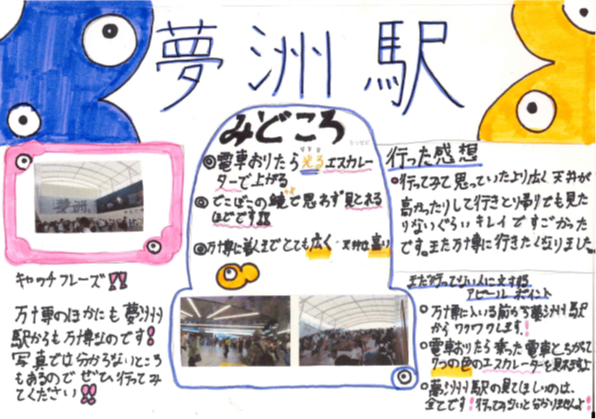 夢洲駅
みどころ
◎電車おりたら光るエスカレ
ーターで上がる
◎でこぼこの鏡で思わず見とれる
ほどです!!
◎万博に着くまでとても広く・天井は高い
キャッチフレーズ!!
万博のほかにも夢洲
駅からも万博なのです!
写真では分からないところ
もあるのでぜひ行ってみ
てください!!
行った感想
•行ってみて思っていたより広く天井が
高かったりして行きとり帰りでも見た
りないぐらいキレイですごかった
です。また万博に行きたくなりました。
まだ行ってない人に対する
アピールポイント
○万博に入いる前から夢洲駅
からワクワクします。!
○電車おりたら乗った電車とちがって
7つの色のエスカレーターを見れますよ
○夢洲駅の見てほしいのは、
全てです!行ってみないと分かりませんよ!